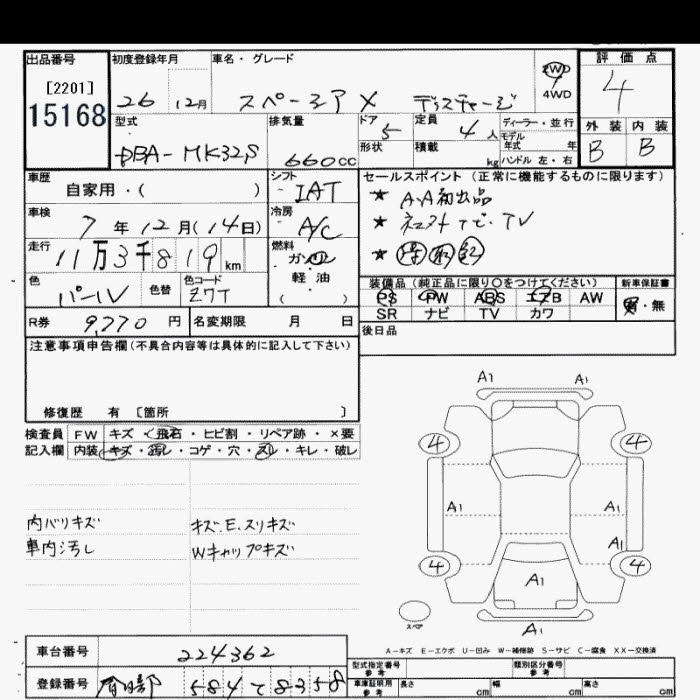 出品番号 初度登録年月 車名・グレード 2WD 評価点
[2201] 26 12月 スペーシア X ディスチャージ 4WD 4
15168
型式 排気量 ドア 定員 ディーラー・並行 外装 内装
DBA-MK32S 660cc 5 4人 モデル年式 年式 B B
形状 積載 kg ハンドル 左・右
車歴 シフト セールスポイント(正常に機能するものに限ります)
自家用・( ) IAT ★ AA初出品
車検 冷房 ★ ネコスト ナビ・TV
7年12月(14日) A/C ★ 保 取 記
走行 燃料
11万3千819km ガソリン
軽油
( )
色 色替 色コード 装備品(純正品に限り○をつけてください) 新車保証書
パール Z7T PS PW ABS エアB AW 有・無
SR ナビ TV カワ
R券 9,770円 名変期限 月 日 後日品
注意事項申告欄(不具合内容等は具体的に記入して下さい)
修復歴 有 [箇所 ]
検査員 FW キズ・飛石・ヒビ割・リペア跡・×要
記入欄 内装 キズ・汚レ・コゲ・穴・スレ・キレ・破レ
A1 A1
4 4
A1 A1
A1
4 4
A1
A1
スペア
内バリキズ キズ.E.スリキズ
車内汚し Wキャップキズ
A-キズ E-エクボ U-凹み W-補修跡 S-サビ C-腐食 XX-交換済
車台番号 224362
型式指定番号 参考 類別区分番号 参考
登録番号 春日部 584て8358
車庫証明用 参考 長さ cm 幅 cm 高さ cm